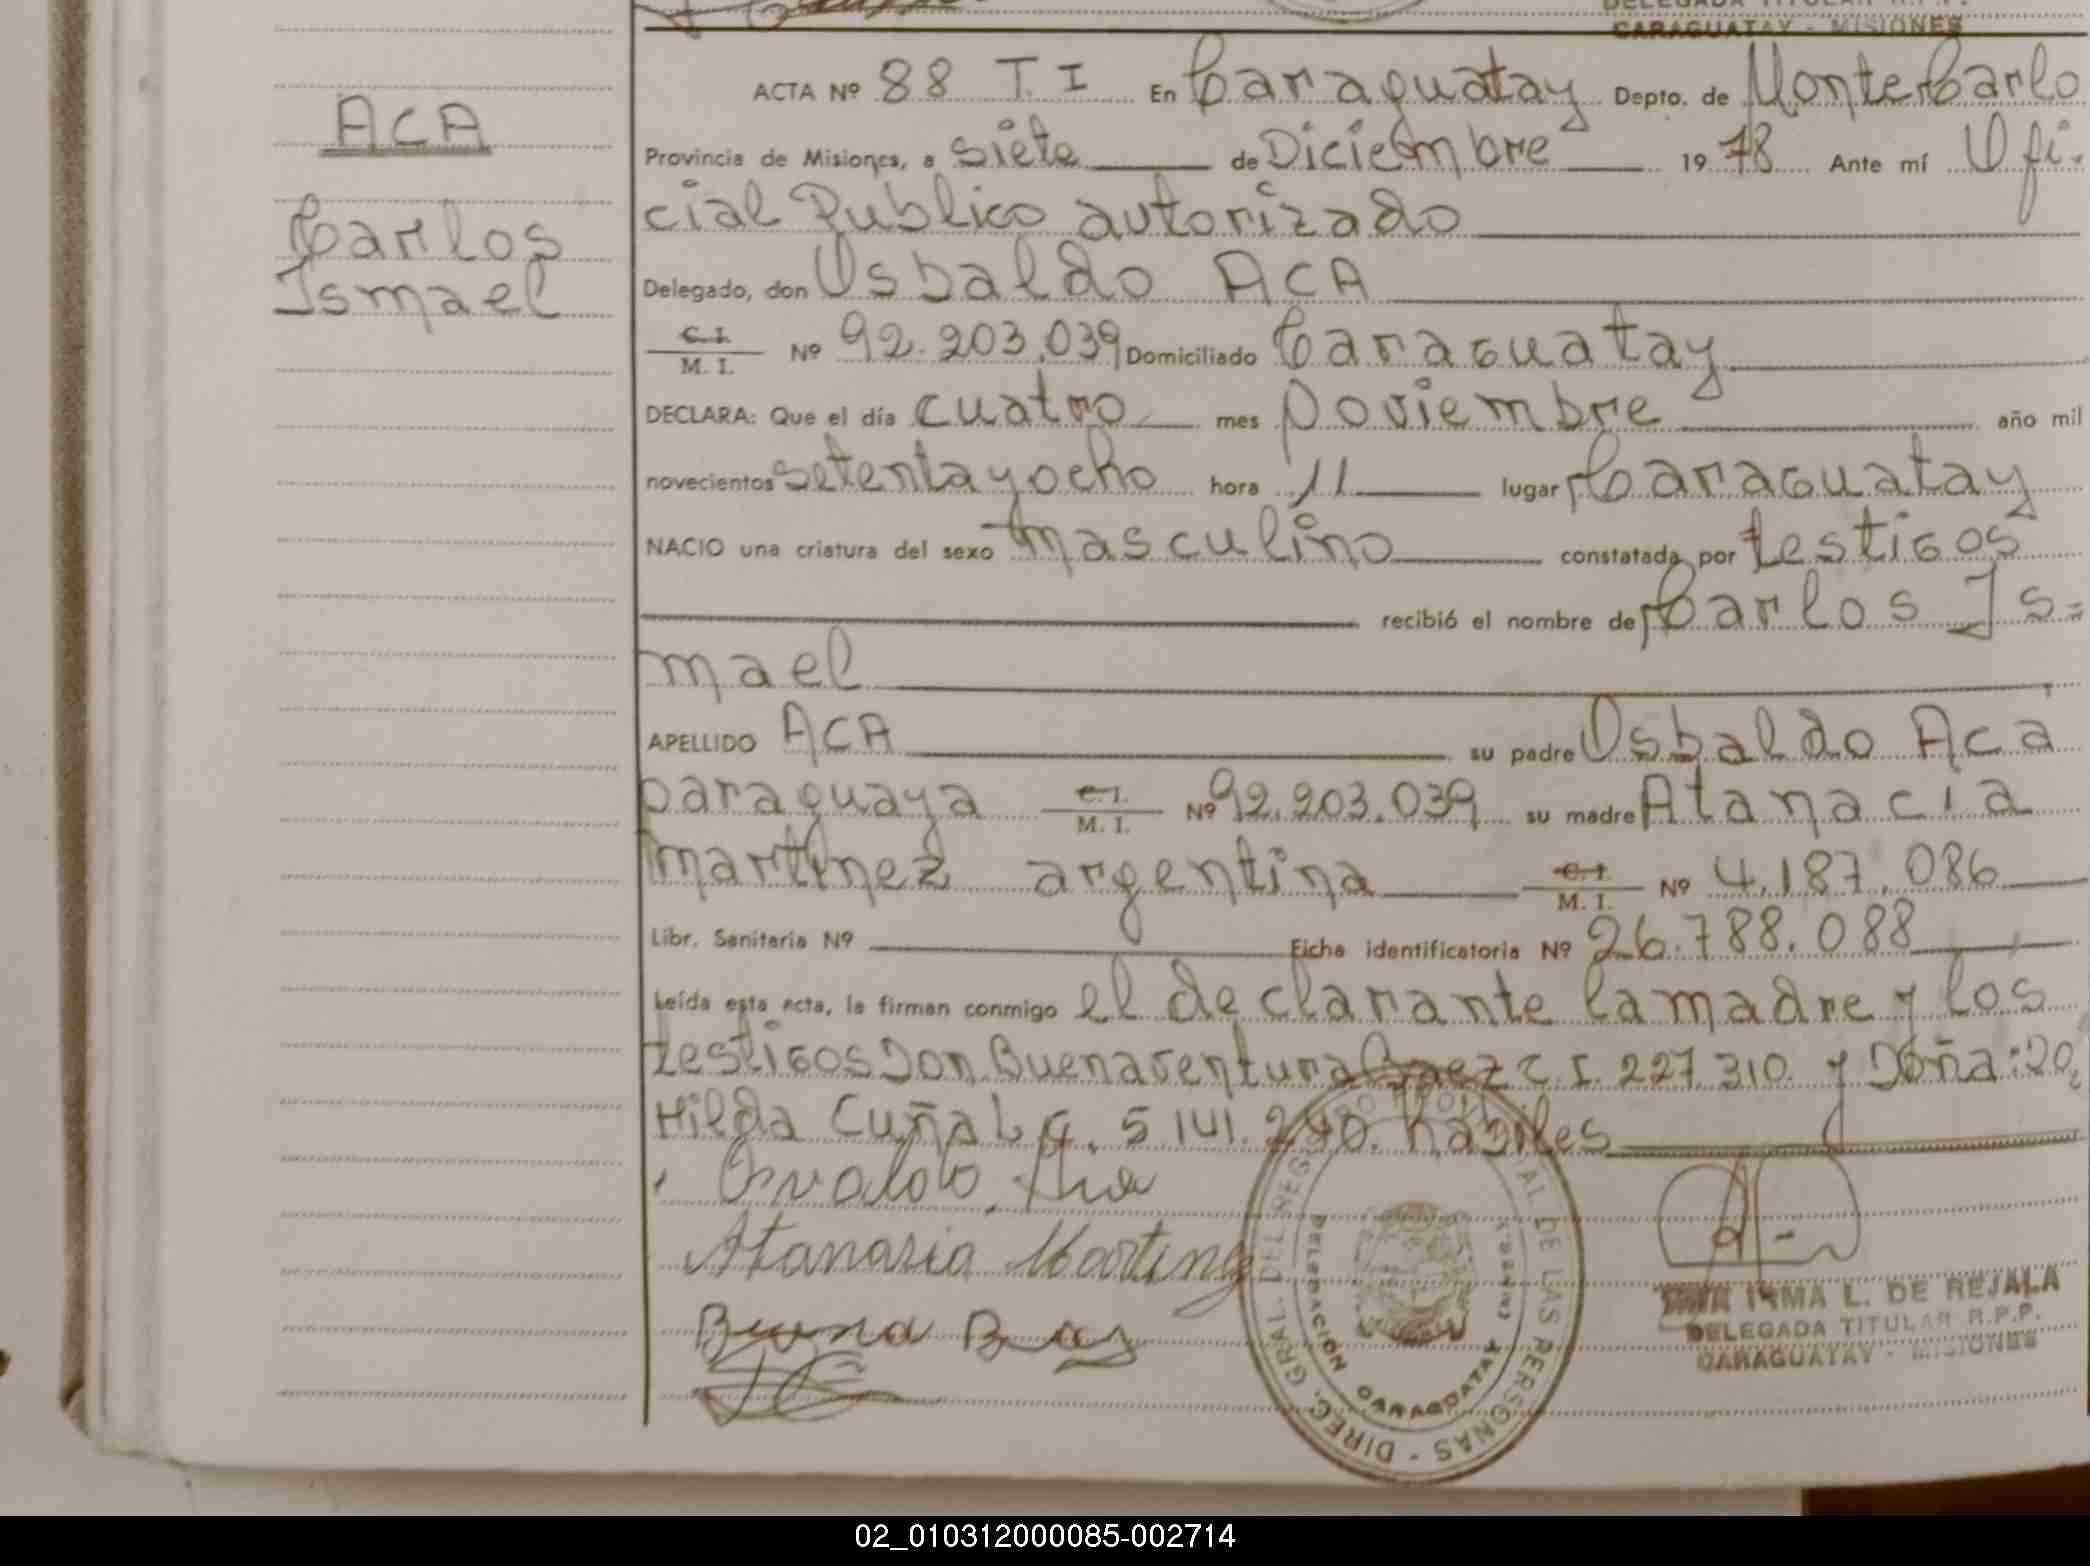 CARAGUATAY - MISIONES
ACTA Nº 88 T. I En Caraguatay Depto. de Monte Carlo
Provincia de Misiones, a siete de Diciembre 1978 Ante mí Ofi-
cial Público autorizado
Delegado, don Osbaldo ACA
C.I. M. I. Nº 92.203.039 Domiciliado Caraguatay
DECLARA: Que el día cuatro mes noviembre año mil
novecientos setenta y ocho hora 11 lugar Caraguatay
NACIO una criatura del sexo masculino constatada por testigos
recibió el nombre de Carlos Is=
mael
APELLIDO ACA su padre Osbaldo Aca
paraguaya C.I. M. I. Nº 92.203.039 su madre Atanacia
martinez argentina C.I. M. I. Nº 4.187.086
Libr. Sanitaria Nº Ficha identificatoria Nº 26.788.088
Leída esta acta, la firman conmigo el declarante la madre y los
testigos Don Buenaventura Baez C I. 227.310. y Doña:
Hilda Cuña 5.141. habiles
Atanacia Martinez
ACA
Carlos
Ismael
DIREC. GRAL. DEL REG. DE LAS PERSONAS
DELEGACION CARAGUATAY
IRMA L. DE REJALA
DELEGADA TITULAR R.P.P.
CARAGUATAY - MISIONES
02_010312000085-002714